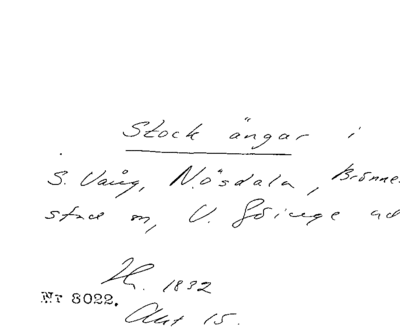 Stock ängar i
S. Vång, N. Ösdala, Brönne
stad m, V. Göinge
H. 1832
Nr 8022.
Akt 15.